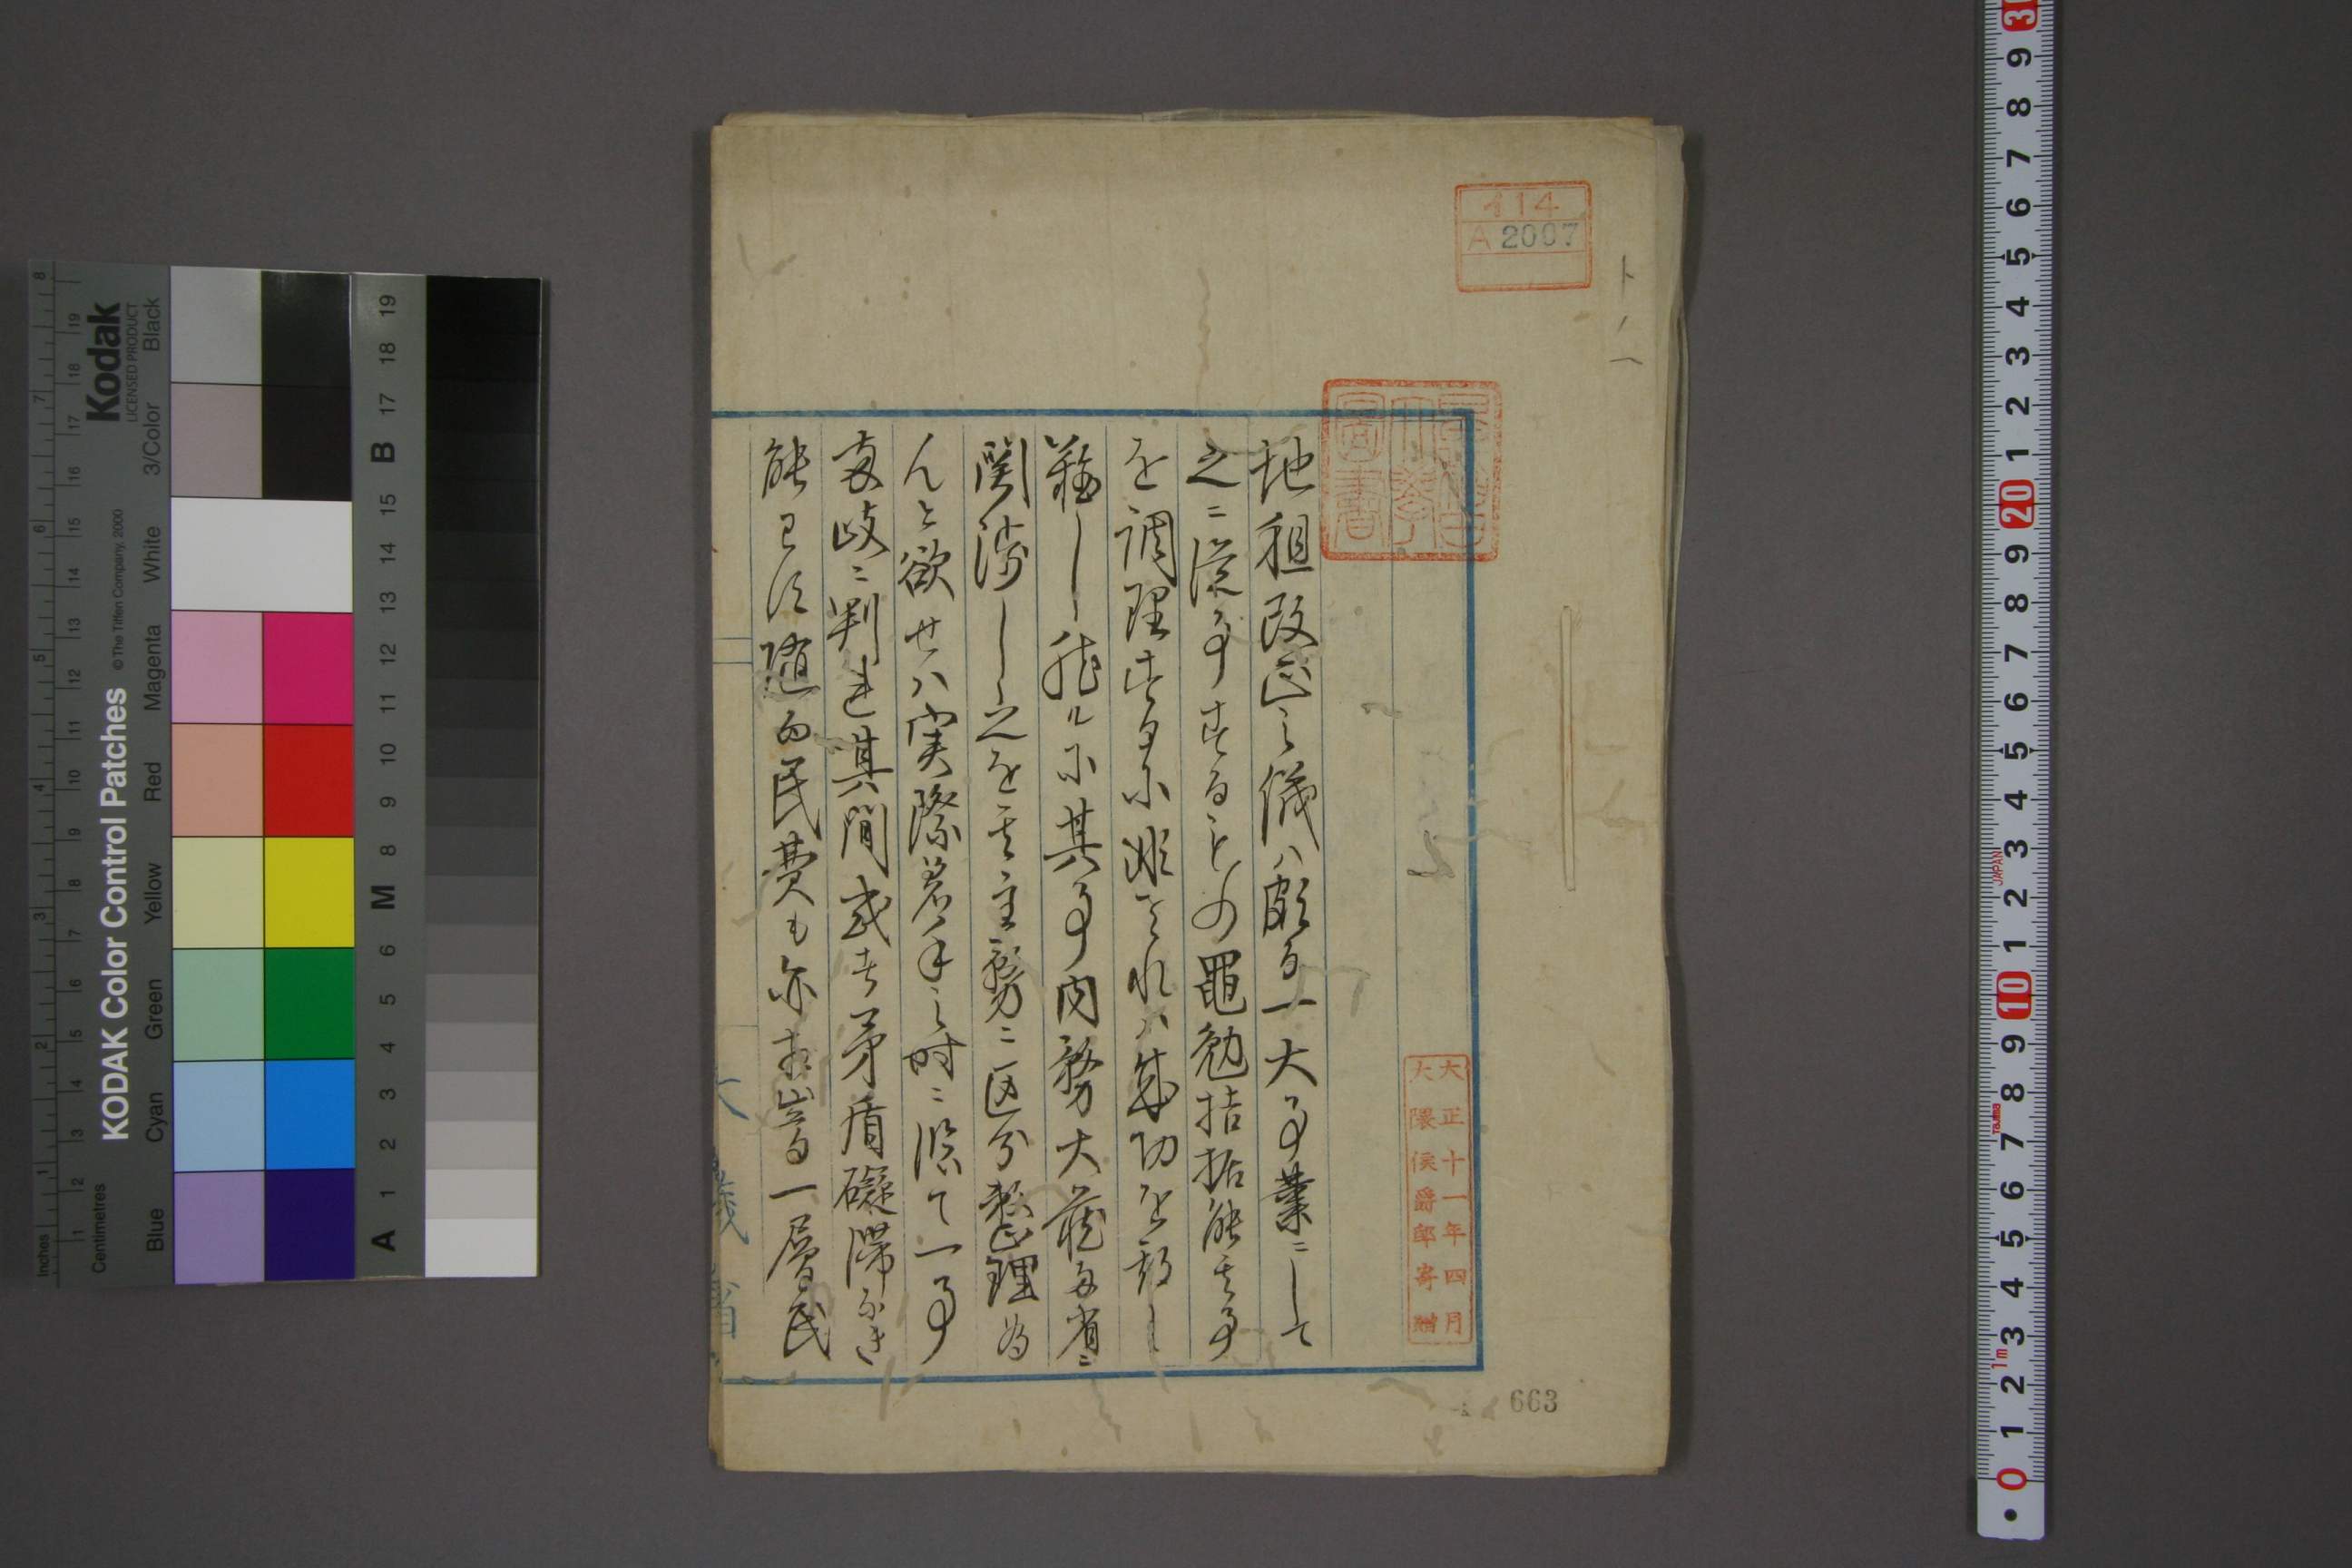 イ14
A 2007
早稲田大学図書
大正十一年四月
大隈侯爵邸寄贈
地租改正之儀ハ頗る一大事業ニして
之ニ従事するもの黽勉拮据能其事
を調理するに非されハ成功を致し
難し然ルに其事内務大蔵両省ニ
関渉し之を其主務ニ区分整理為
んと欲せハ実際着手之時ニ臨て一事
両岐ニ判れ其間或者矛盾礙滞なき
能ハす随而民費も亦相嵩る一層民
大蔵省
663
KODAK Color Control Patches
© The Tiffen Company, 2000
Kodak
LICENSED PRODUCT
Inches
Centimetres
Blue
Cyan
Green
Yellow
Red
Magenta
White
3/Color
Black
A 1 2 3 4 5 6 M 8 9 10 11 12 13 14 15 B 17 18 19
JAPAN
Tajima
1m